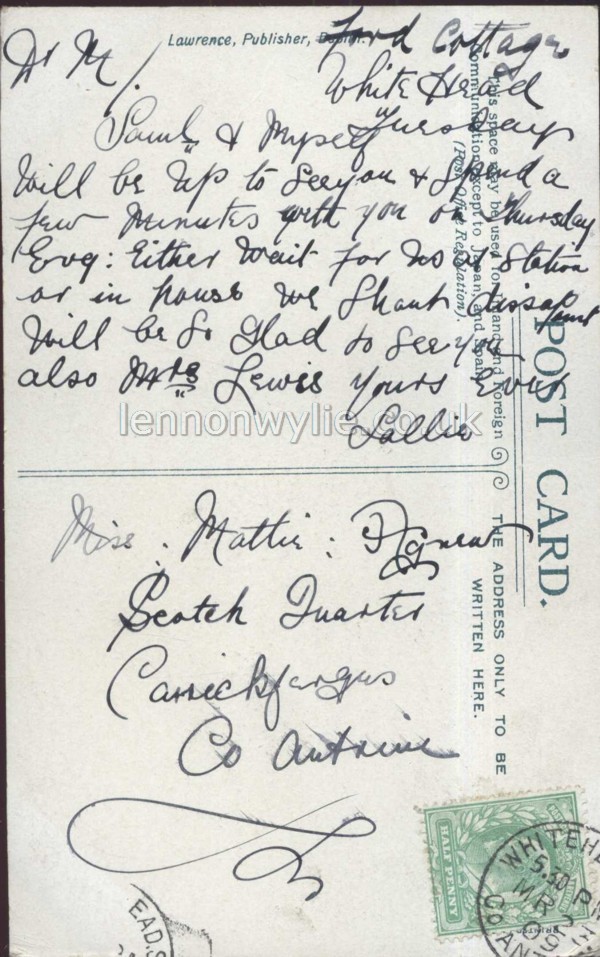 Lawrence, Publisher, Dublin.
Ford Cottage
White Head
Tuesday
Dr M/
Saml & Myself
Will be up to see you & Spend a
few Minutes with you on Thursday
Evg: Either Wait for us at Station
or in house we Shant dissapoint
Will be So Glad to See you
also Mrs Lewis yours Ever
Sallie
lennonwylie.co.uk
Miss. Mattie: Agnew
Scotch Quarter
Carrickfergus
Co Antrim
POST CARD.
This space may be used for Inland and Foreign
Communication except to Japan, and Spain
(Post Office Regulation).
THE ADDRESS ONLY TO BE
WRITTEN HERE.
HALF PENNY
WHITEHEA
5.50 PM
MR
CO AN
EAD.